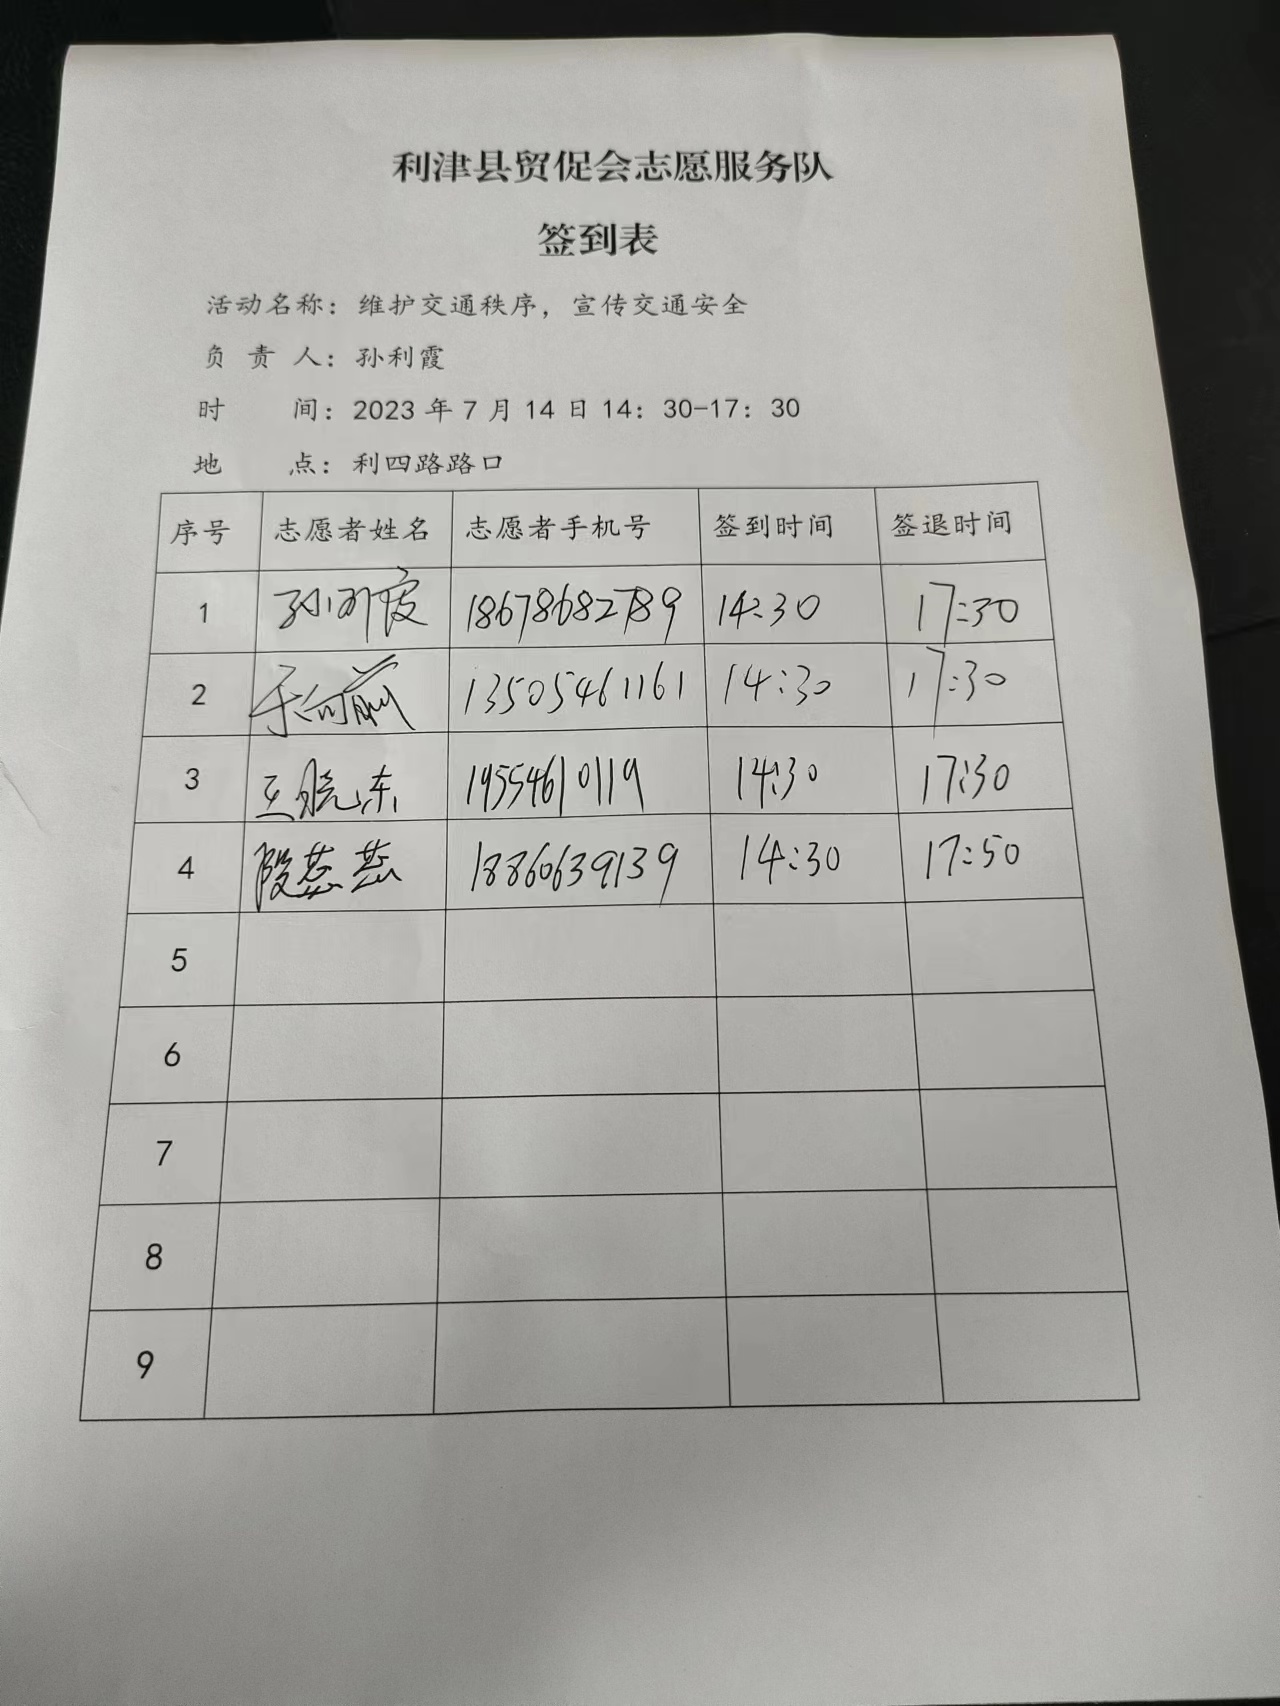 利津县贸促会志愿服务队
签到表
活动名称：维护交通秩序，宣传交通安全
负 责 人：孙利霞
时 间：2023 年 7 月 14 日 14：30-17：30
地 点：利四路路口
序号 志愿者姓名 志愿者手机号 签到时间 签退时间
1 孙利霞 18678682789 14:30 17:30
2 13505461161 14:30 17:30
3 王晓东 19554610119 14:30 17:30
4 段蕊蕊 18860639139 14:30 17:50
5
6
7
8
9